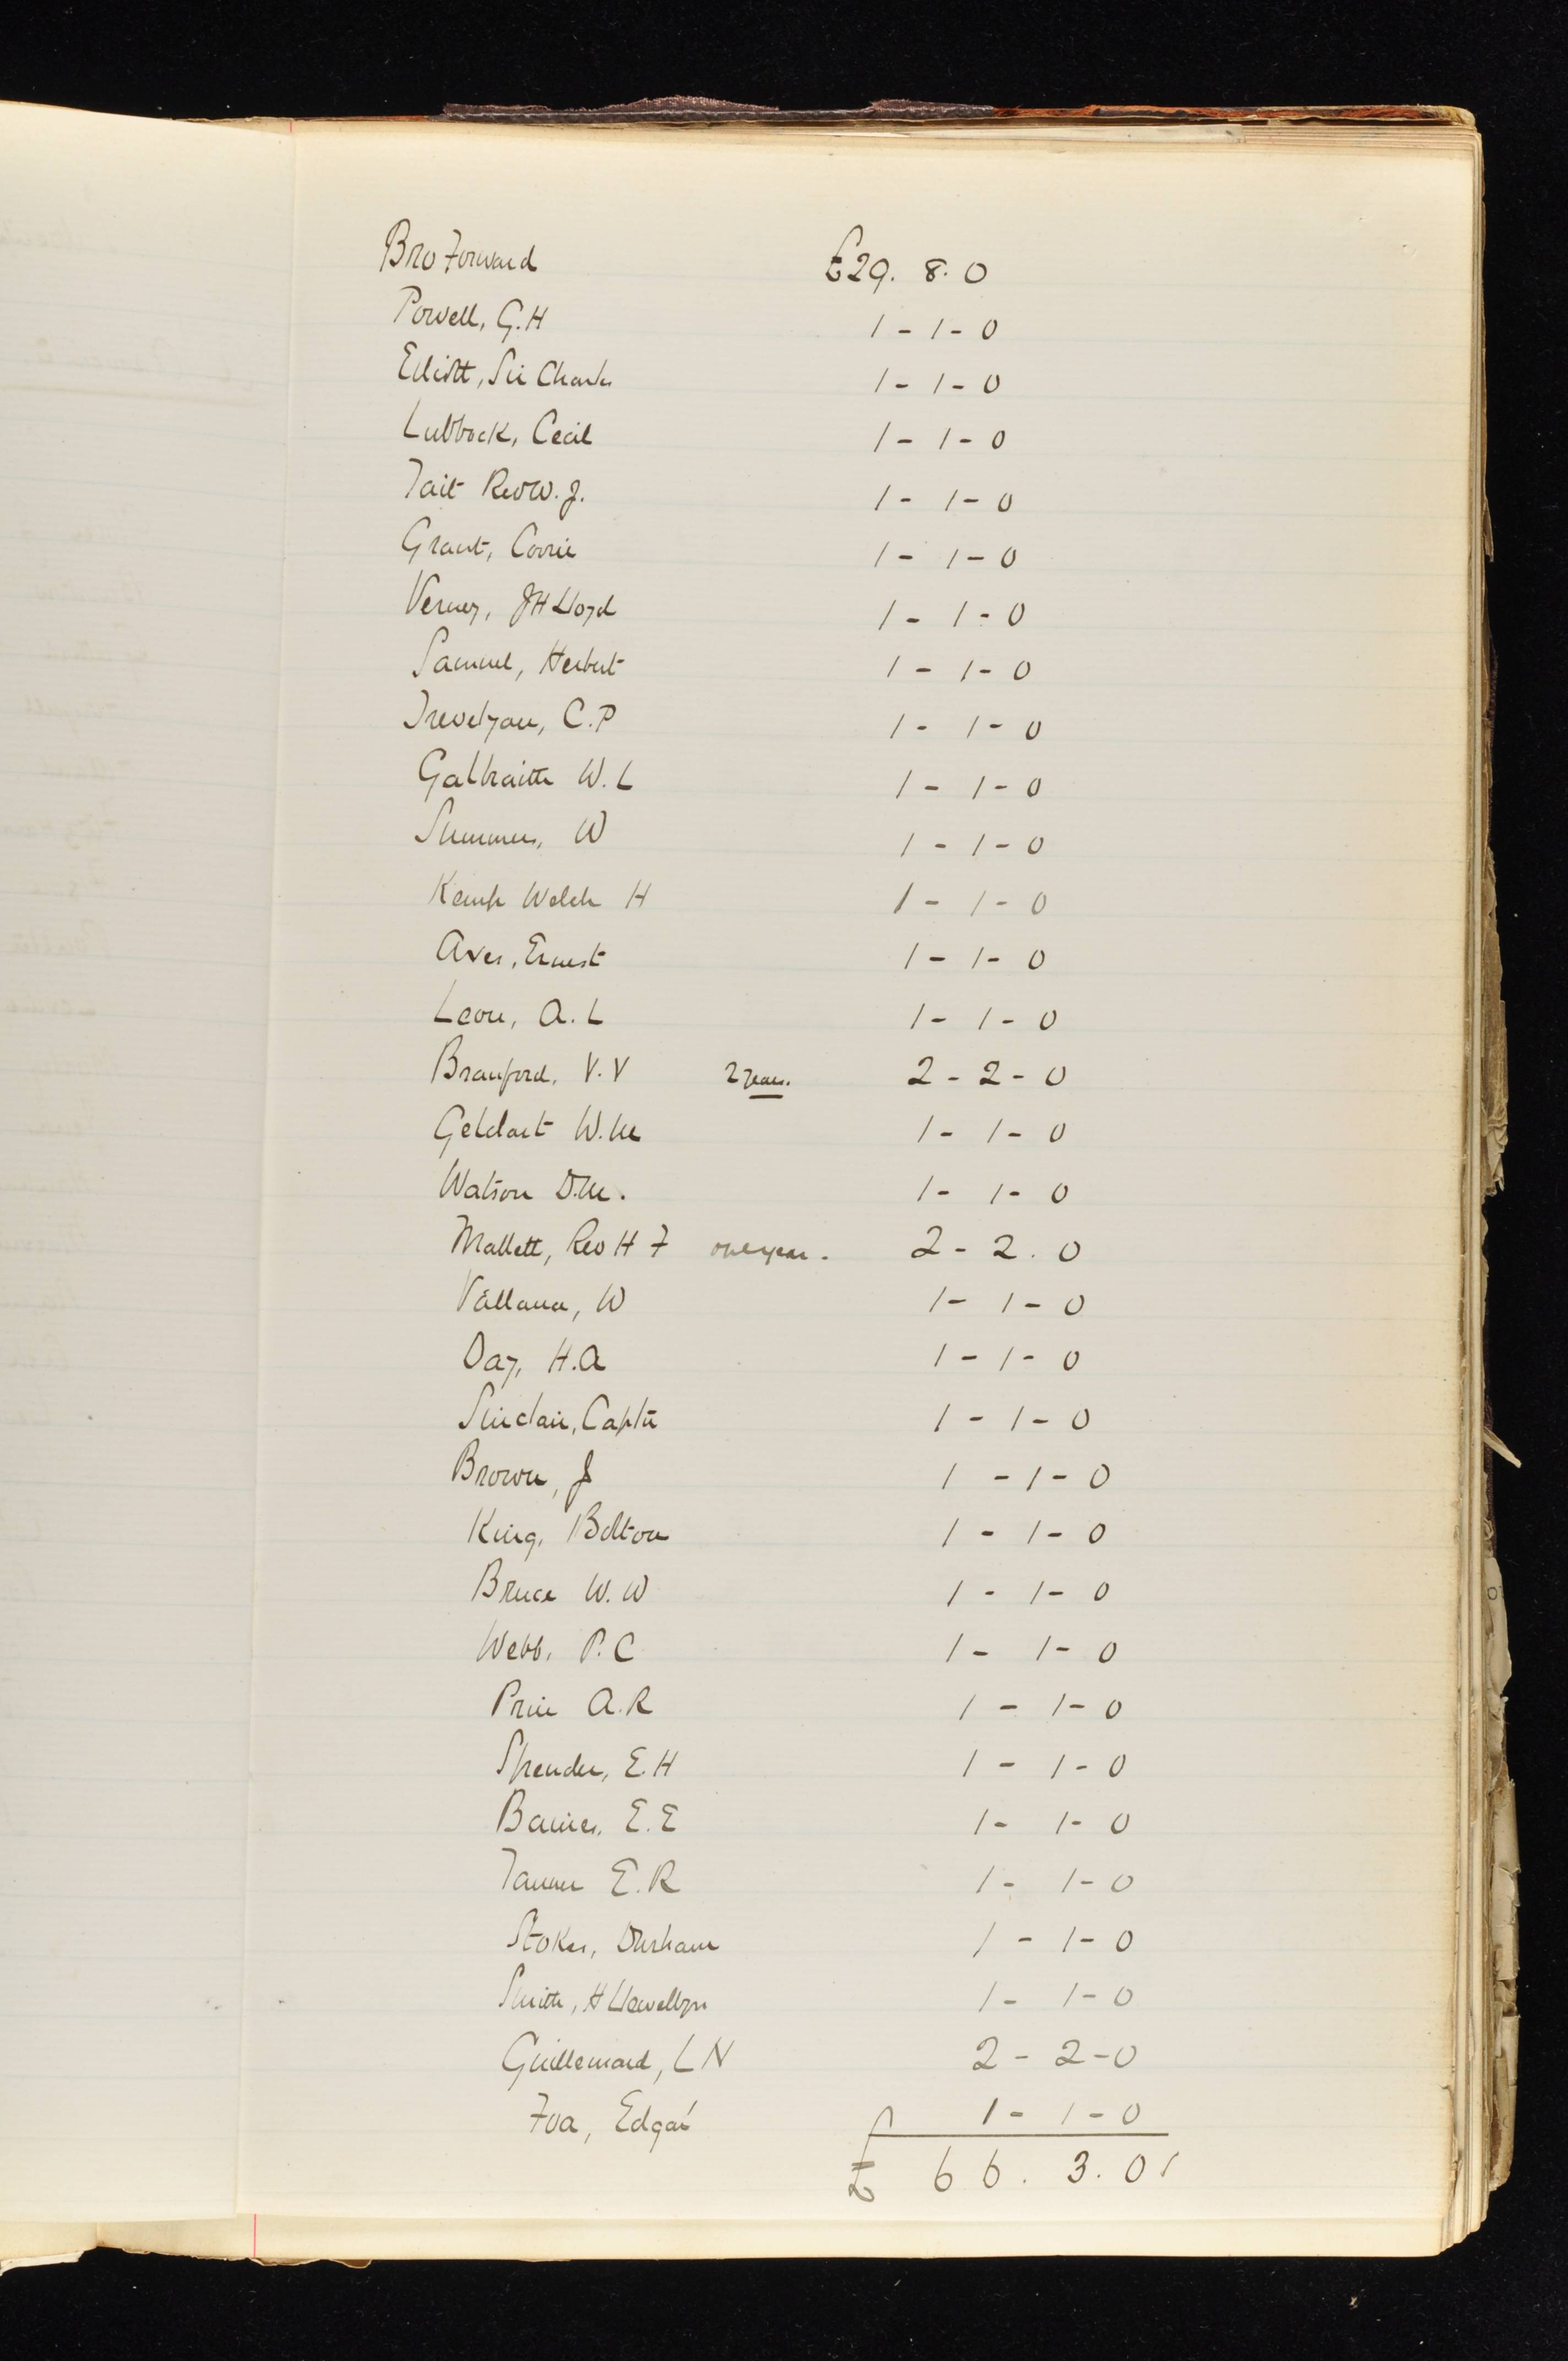 Bro Forward £29. 8. 0
Powell, G.H 1 - 1 - 0
Elliott, Sir Charles 1 - 1 - 0
Lubbock, Cecil 1 - 1 - 0
Tait Rev W. J. 1 - 1 - 0
Grant, Corrie 1 - 1 - 0
Verney, JH Lloyd 1 - 1 - 0
Samuel, Herbert 1 - 1 - 0
Trevelyan, C.P 1 - 1 - 0
Galbraith W. L 1 - 1 - 0
Summers, W 1 - 1 - 0
Kemp Welch H 1 - 1 - 0
Aves, Ernest 1 - 1 - 0
Leon, A. L 1 - 1 - 0
Branford, V. V 2 years. 2 - 2 - 0
Geldart W. M 1 - 1 - 0
Watson D.M. 1 - 1 - 0
Mallett, Rev H F one year. 2 - 2 . 0
Vallance, W 1 - 1 - 0
Day, H.A 1 - 1 - 0
Sinclair, Captn 1 - 1 - 0
Brown, J 1 - 1 - 0
King, Bolton 1 - 1 - 0
Bruce W. W 1 - 1 - 0
Webb, P. C 1 - 1 - 0
Price A. R 1 - 1 - 0
Spender, E. H 1 - 1 - 0
Baines, E. E 1 - 1 - 0
Tanner E. R 1 - 1 - 0
Stokes, Durham 1 - 1 - 0
Smith, H Llewellyn 1 - 1 - 0
Guillemard, L N 2 - 2 - 0
Foa, Edgar 1 - 1 - 0
£ 66. 3. 0